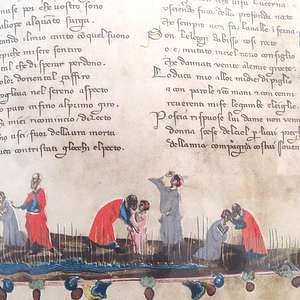 muse poi che vostro sono
aliope alquanto surga
ando il mio canto con quel suono
misere sentiro
tal che di sperar perdono
color doriental zaffiro
glieva nel sereno aspecto
puro infino al primo giro
i miei ricomincio dilecto
usci fuor dellaura morta
vea contristati gliocchi el pecto
usendo fuor della profonda nocte
Che sempre nera fa la valle inferna
Son le leggi dabisso cosi rocte
o e mutato in ciel novo consiglio
che dannati venite alemie grocte
Lo duca mio allor midie dipiglio
e con parole e con mani e con cenni
reverenti mife legambe elciglio
Poscia rispuose lui dame non venni
donna scese delciel per licui prieghi
della mia compagnia costui sovenni